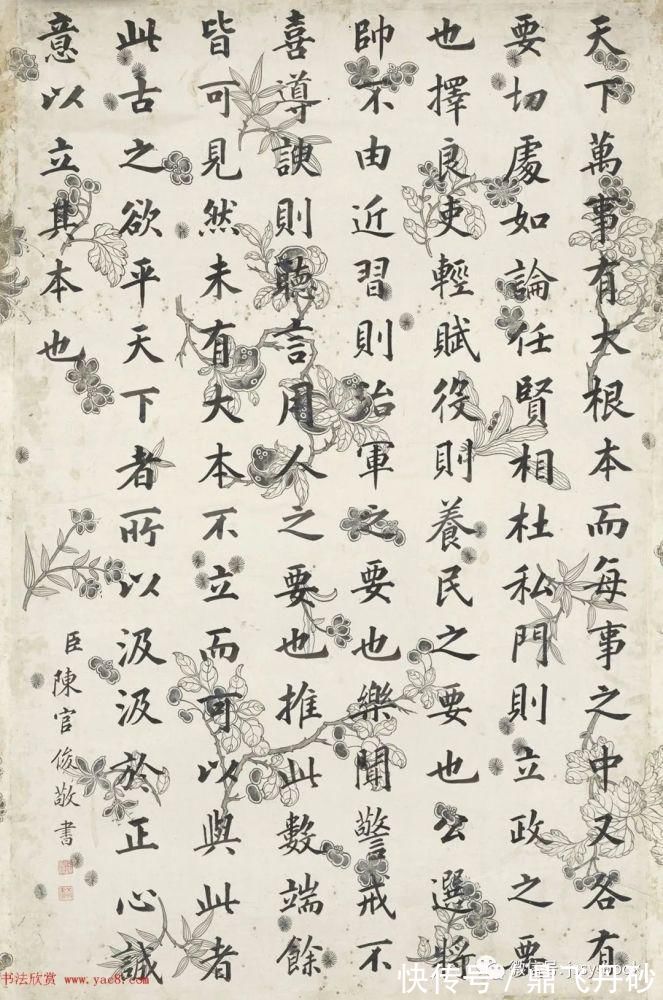 天下萬事有大根本而每事之中又各有
要切處如論任賢相杜私門則立政之要
也擇良吏輕賦役則養民之要也公選將
帥不由近習則治軍之要也樂聞警戒不
喜導諛則聽言用人之要也推此數端餘
皆可見然未有大本不立而可以與此者
此古之欲平天下者所以汲汲於正心誠
意以立其本也
臣陳官俊敬書
书法欣赏 www.yac8.com
微信号:
快传号/鼎飞丹砂